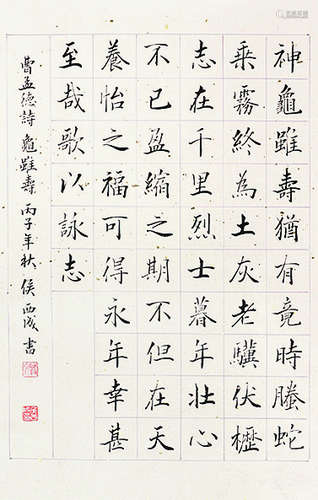 神龜雖壽猶有竟時螣蛇
乘霧終為土灰老驥伏櫪
志在千里烈士暮年壯心
不已盈縮之期不但在天
養怡之福可得永年幸甚
至哉歌以詠志
曹孟德詩 龜雖壽 丙子年秋 侯西成書